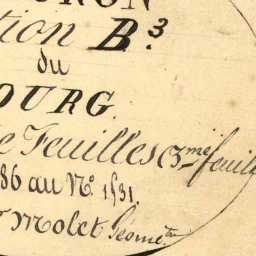 RON
tion B.3
du
OURG
e Feuilles (3me feuille
86 au No. 1131.
r Molet Géomètre